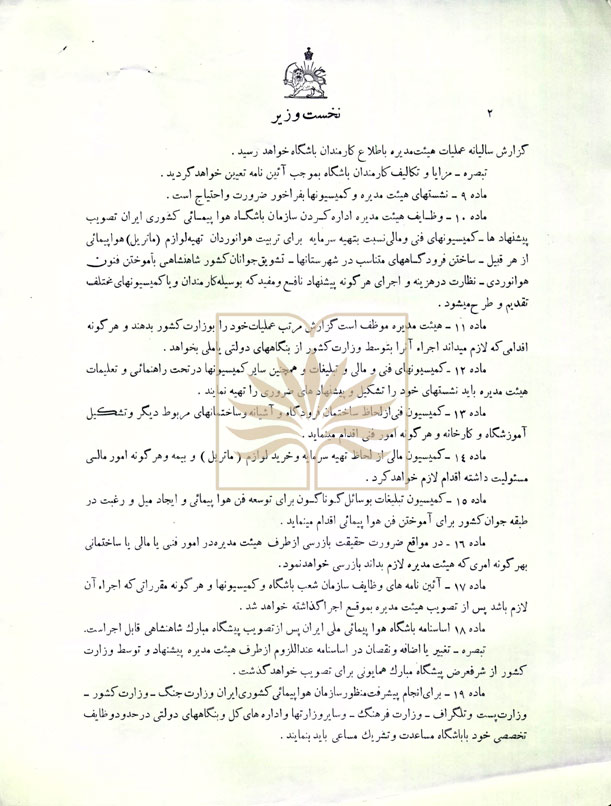 ۲
نخست وزیر
گزارش سالیانه عملیات هیئت مدیره باطلاع کارمندان باشگاه خواهد رسید .
تبصره ـ مزایا و تکالیف کارمندان باشگاه بموجب آئین نامه تعیین خواهد گردید .
ماده ۹ ـ نشستهای هیئت مدیره و کمیسیونها بفراخور ضرورت و احتیاج است .
ماده ۱۰ ـ وظایف هیئت مدیره اداره کردن سازمان باشگاه هوا پیمائی کشوری ایران تصویب
پیشنهاد ها ـ کمیسیونهای فنی و مالی نسبت بتهیه سرمایه برای تربیت هوانوردان تهیه لوازم (ماتریل) هواپیمائی
از هر قبیل ـ ساختن فرودگاههای متناسب در شهرستانها ـ تشویق جوانان کشور شاهنشاهی بآموختن فنون
هوانوردی ـ نظارت در هزینه و اجرای هر گونه پیشنهاد نافع و مفید که بوسیله کارمندان و یا کمیسیونهای مختلف
تقدیم و طرح میشود .
ماده ۱۱ ـ هیئت مدیره موظف است گزارش مرتب عملیات خود را بوزارت کشور بدهند و هر گونه
اقدامی که لازم میداند اجراء آنرا بتوسط وزارت کشور از بنگاههای دولتی یا ملی بخواهد .
ماده ۱۲ ـ کمیسیونهای فنی و مالی و تبلیغات و همچنین سایر کمیسیونها در تحت راهنمائی و تعلیمات
هیئت مدیره باید نشستهای خود را تشکیل و پیشنهاد های ضروری را تهیه نمایند .
ماده ۱۳ ـ کمیسیون فنی از لحاظ ساختمان فرودگاه و آشیانه و ساختمانهای مربوط دیگر و تشکیل
آموزشگاه و کارخانه و هر گونه امور فنی اقدام مینماید .
ماده ۱۴ ـ کمیسیون مالی از لحاظ تهیه سرمایه و خرید لوازم ( ماتریل ) و بیمه و هر گونه امور مالی
مسئولیت داشته اقدام لازم خواهد کرد .
ماده ۱۵ ـ کمیسیون تبلیغات بوسائل گوناگون برای توسعه فن هوا پیمائی و ایجاد میل و رغبت در
طبقه جوان کشور برای آموختن فن هوا پیمائی اقدام مینماید .
ماده ۱۶ ـ در مواقع ضرورت حقیقت بازرسی از طرف هیئت مدیره در امور فنی یا مالی یا ساختمانی
بهر گونه امری که هیئت مدیره لازم بداند بازرسی خواهد نمود.
ماده ۱۷ ـ آئین نامه های وظایف سازمان شعب باشگاه و کمیسیونها و هر گونه مقرراتی که اجراء آن
لازم باشد پس از تصویب هیئت مدیره بموقع اجرا گذاشته خواهد شد .
ماده ۱۸ اساسنامه باشگاه هوا پیمائی ملی ایران پس از تصویب پیشگاه مبارك شاهنشاهی قابل اجراست.
تبصره ـ تغییر یا اضافه و نقصان در اساسنامه عنداللزوم از طرف هیئت مدیره پیشنهاد و توسط وزارت
کشور از شرفعرض پیشگاه مبارك همایونی برای تصویب خواهد گذشت .
ماده ۱۹ ـ برای انجام پیشرفت منظور سازمان هوا پیمائی کشوری ایران وزارت جنگ ـ وزارت کشور ـ
وزارت پست و تلگراف ـ وزارت فرهنگ ـ و سایر وزارتها و اداره های کل و بنگاههای دولتی در حدود وظایف
تخصصی خود با باشگاه مساعدت و تشریك مساعی باید بنمایند .